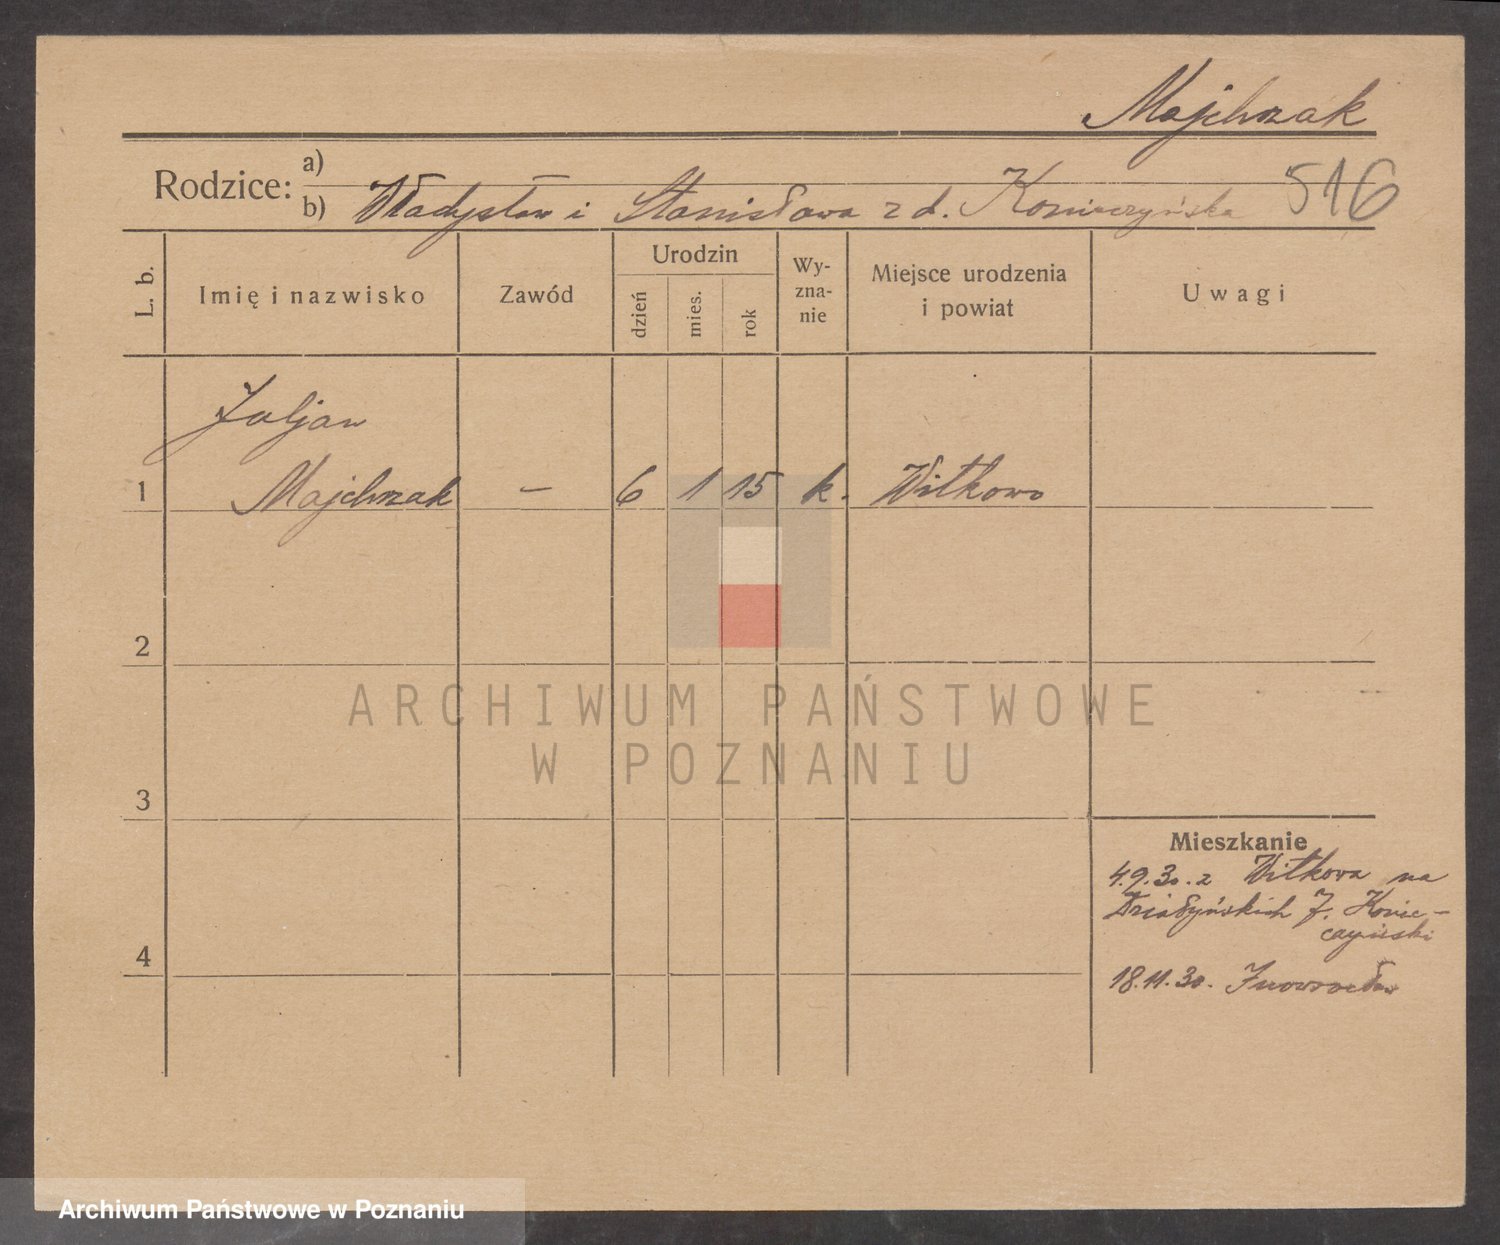 Majchrzak
Rodzice: a)
b) Władysław i Stanisława z d. Konieczyńska
516
L. b.
Imię i nazwisko
Zawód
Urodzin
dzień
mies.
rok
Wy-
zna-
nie
Miejsce urodzenia
i powiat
Uwagi
Juljan
1 Majchrzak – 6 1 15 k. Witkowo
2
ARCHIWUM PAŃSTWOWE
W POZNANIU
3
Mieszkanie
4.9.30. z Witkowa na
Działyńskich J. Konie-
czyński
4
18.11.30. Inowrocław
Archiwum Państwowe w Poznaniu